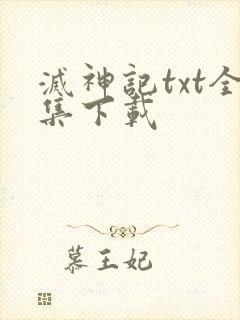 滅神記txt全
集下載
慕王妃